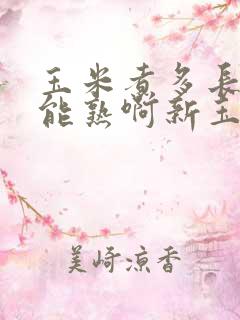 玉米煮多長
能熟啊新玉
美崎凉香